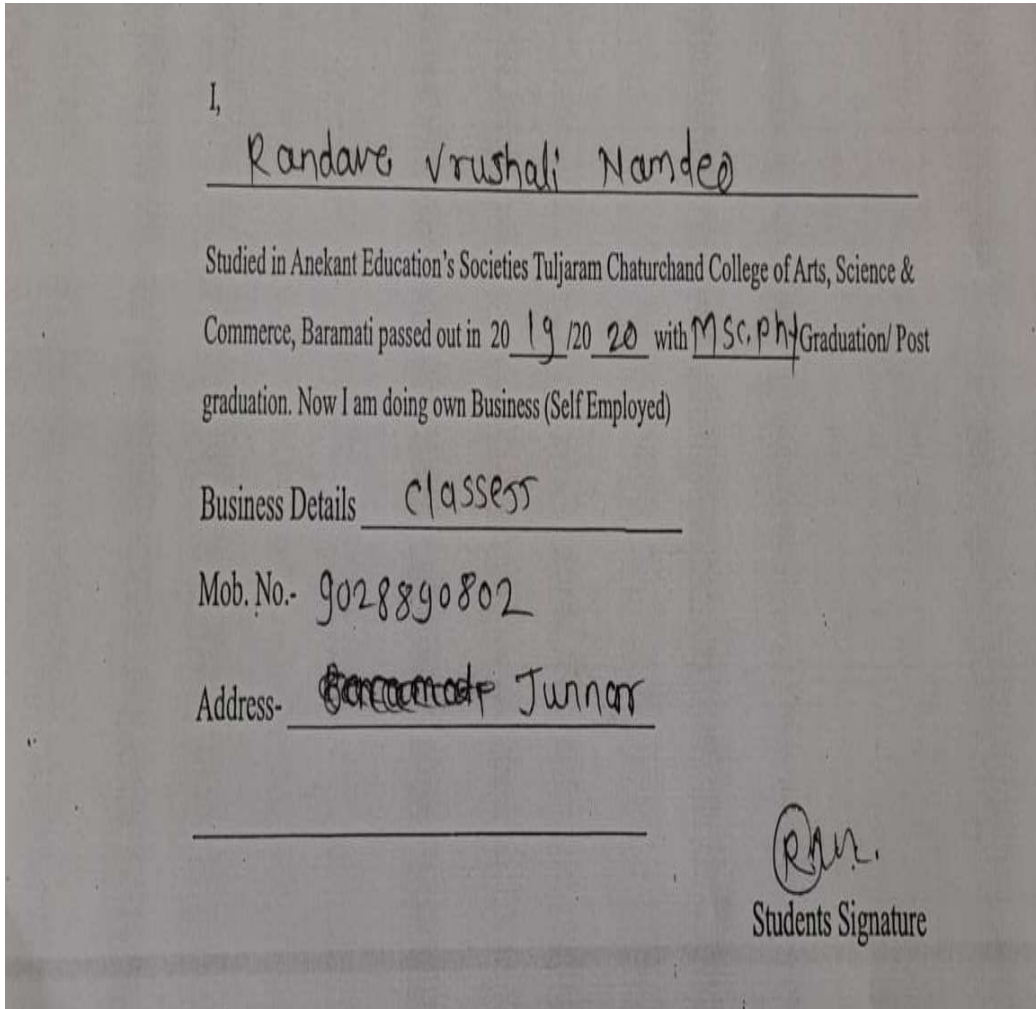 I,
Randave Vrushali Namdeo
Studied in Anekant Education's Societies Tuljaram Chaturchand College of Arts, Science &
Commerce, Baramati passed out in 20 19 /20 20 with MSc.phy Graduation/ Post
graduation. Now I am doing own Business (Self Employed)
Business Details classess
Mob. No.- 9028890802
Address- Junnar
Students Signature